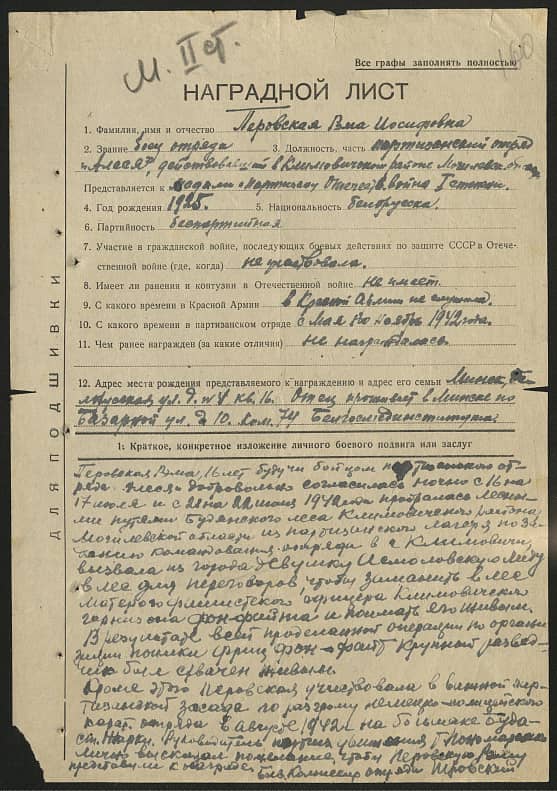 М. II ст.
Все графы заполнять полностью
НАГРАДНОЙ ЛИСТ
1. Фамилия, имя и отчество Перовская Эма Иосифовна
2. Звание боец отряда 3. Должность, часть партизанский отряд
действовавший в Климовичском районе Могилевск.
Представляется к медали "Партизану Отечеств. война I степени
4. Год рождения 1925. 5. Национальность белорусска.
6. Партийность беспартийная
7. Участие в гражданской войне, последующих боевых действиях по защите СССР в Отече-
ственной войне (где, когда) не участвовала.
8. Имеет ли ранения и контузии в Отечественной войне не имеет.
9. С какого времени в Красной Армии в Красной Армии не служила.
10. С какого времени в партизанском отряде с мая по ноябрь 1942 года.
11. Чем ранее награжден (за какие отличия) не награждалась
12. Адрес места рождения представляемого к награждению и адрес его семьи Минск, Бе-
лорусская ул. д. № 4 кв. 16. Отец проживает в Минске по
Базарной ул. д 10. ком. 74
I. Краткое, конкретное изложение личного боевого подвига или заслуг
Перовская Эма, 16 лет будучи бойцом партизанского от-
ряда добровольно согласилась ночью с 16 на
17 июля и с 21 на 22 июля 1942 года пробралась лесны-
ми путями леса Климовичского района
Могилевской области из партизанского лагеря по за-
данию командования отряда в г. Климовичи
вызвала из города девушку
в лес для переговоров, чтобы заманить в лес
матерого фашистского офицера Климовичского
гарнизона и поймать его живым.
В результате всей проделанной операции по органи-
зации поимки фриц крупный развед-
чик был схвачен живым.
Кроме этого Перовская участвовала в пар-
тизанской засаде по разгрому немецко-полицейского
карат. отряда в августе 1942 г. на большаке
Руководитель
лично высказал пожелание, чтобы Перовскую Эму
представили к награде. Комиссар отряда Перовский
ДЛЯ ПОДШИВКИ